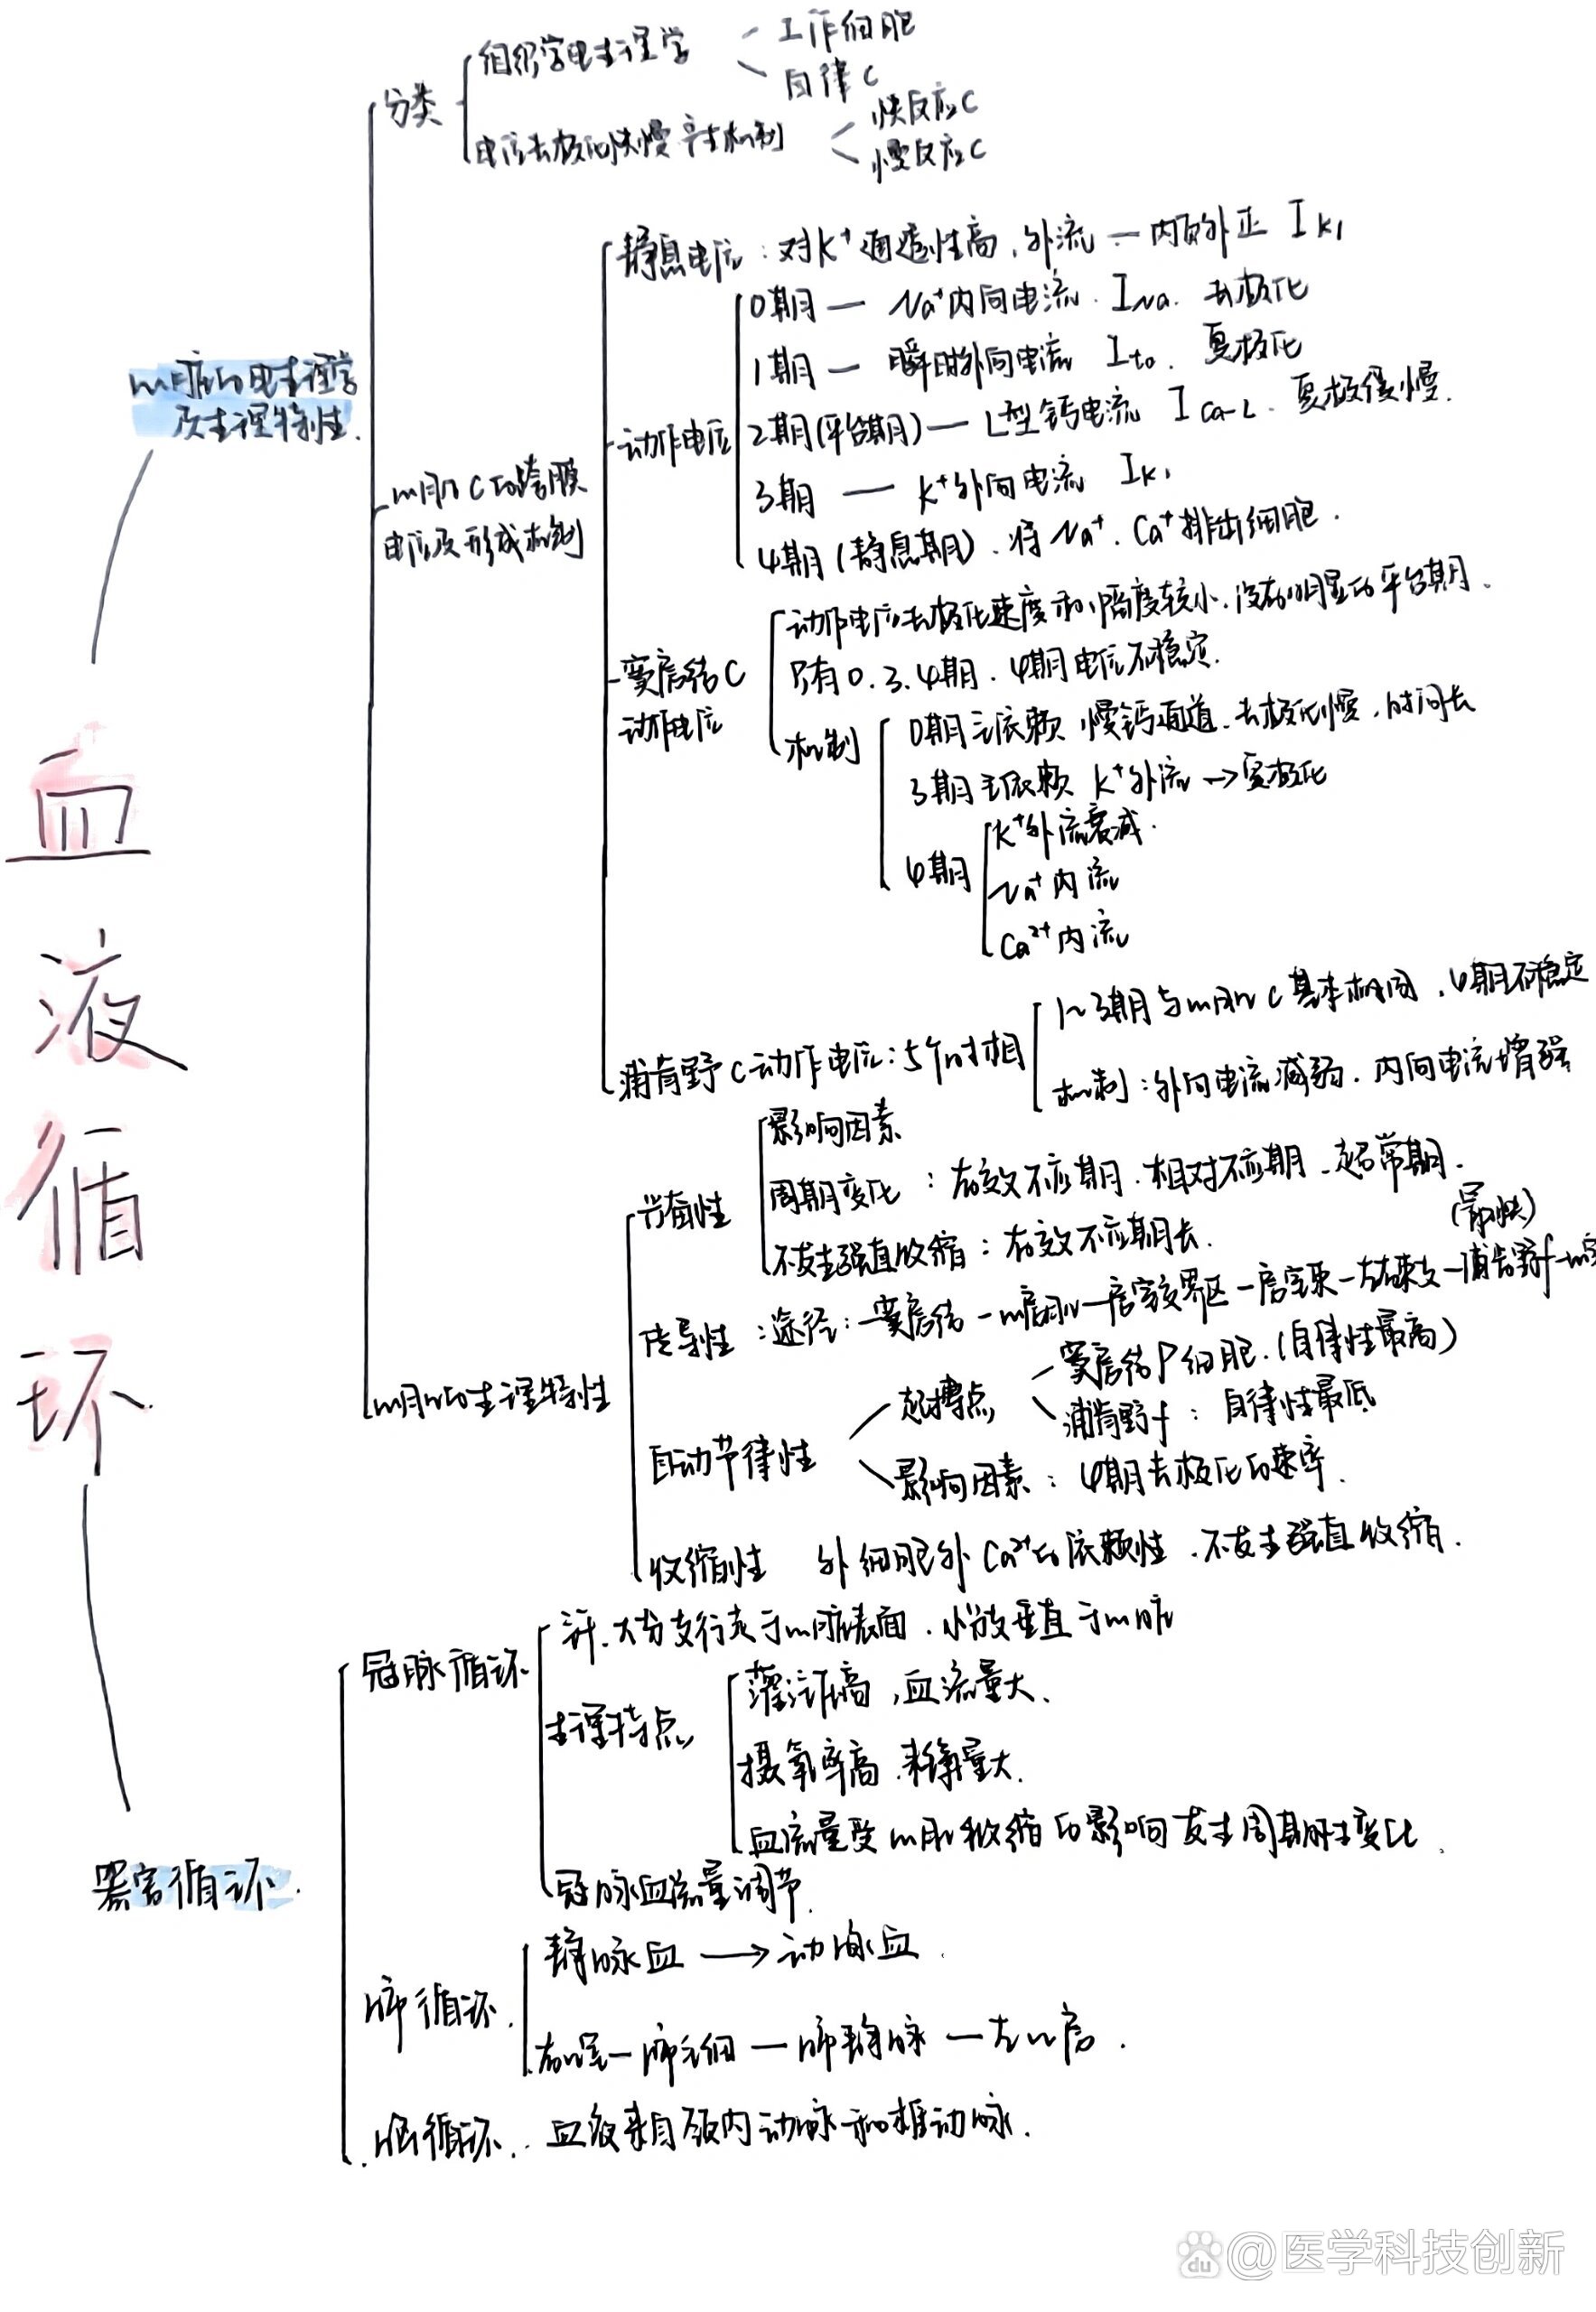 血液循环
心脏的电生理学
及生理特性.
分类
组织学电生理学
工作细胞
自律C
电位去极化快慢产生机制
快反应C
慢反应C
心肌C的跨膜
电位及形成机制
静息电位：对K⁺通透性高.外流—内负外正 IK1
动作电位
0期— Na⁺内向电流. INa. 去极化
1期— 瞬时外向电流 Ito. 复极化
2期(平台期)— L型钙电流 ICa-L. 复极缓慢.
3期 — K⁺外向电流 IK1
4期(静息期). 将Na⁺. Ca⁺排出细胞.
窦房结C
动作电位
动作电位去极化速度和幅度较小.没有明显的平台期.
只有0.3.4期. 4期电位不稳定.
机制
0期主依赖 慢钙通道.去极化慢.时间长
3期主依赖 K⁺外流→复极化
4期
K⁺外流衰减.
Na⁺内流
Ca²⁺内流
浦肯野C动作电位:5个时相
1~3期与心肌C基本相同.4期不稳定
机制:外向电流减弱.内向电流增强
心肌的生理特性
兴奋性
影响因素
周期变化：有效不应期.相对不应期.超常期.
不发生强直收缩：有效不应期长.
(最快)
传导性：途径：—窦房结—心房肌—房室交界区—房室束—左右束支—浦肯野f—心室
自动节律性
起搏点
窦房结P细胞.(自律性最高)
浦肯野f：自律性最低
影响因素：4期去极化的速率.
收缩性 外细胞外Ca²⁺的依赖性.不发生强直收缩.
器官循环.
冠脉循环
解.大分支行走于心脏表面.小分支垂直于心脏
生理特点
灌注压高,血流量大.
摄氧率高.耗氧量大.
血流量受心肌收缩的影响发生周期性变化.
冠脉血流量调节.
肺循环.
静脉血→动脉血.
右心室—肺毛细—肺静脉—左心房.
脑循环. 血液来自颈内动脉和椎动脉.
du @医学科技创新